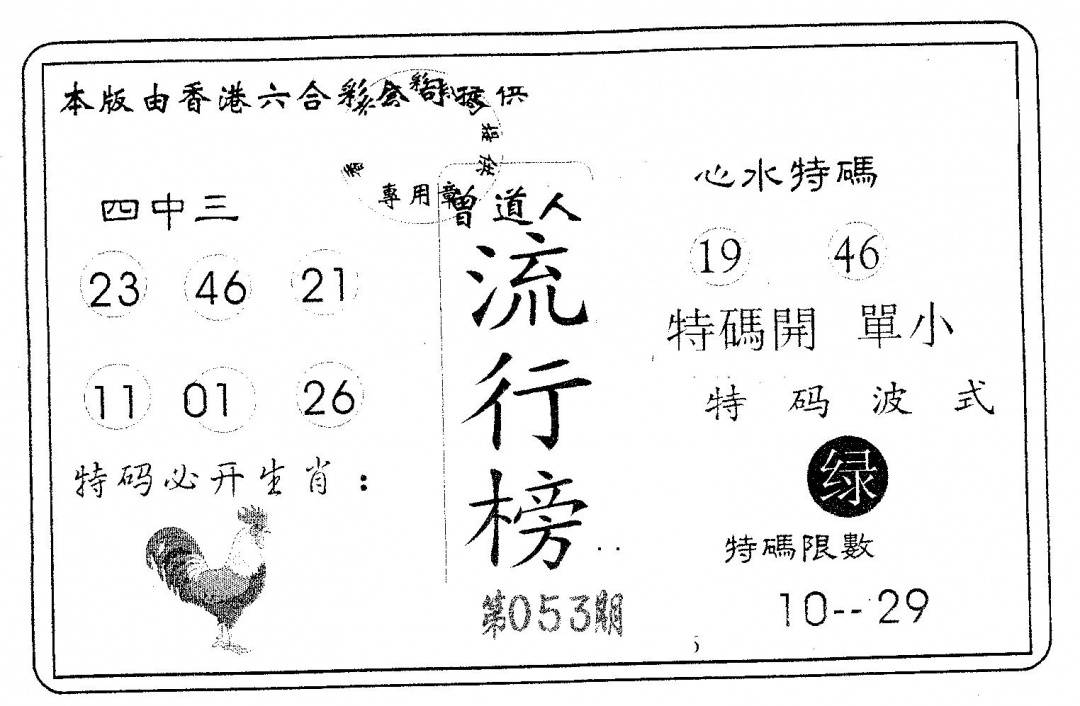 本版由香港六合彩公司提供
專用章
四中三
23 46 21
11 01 26
特码必开生肖：
曾道人
流行榜
第053期
心水特碼
19 46
特碼開 單小
特码波式
绿
特碼限數
10-- 29